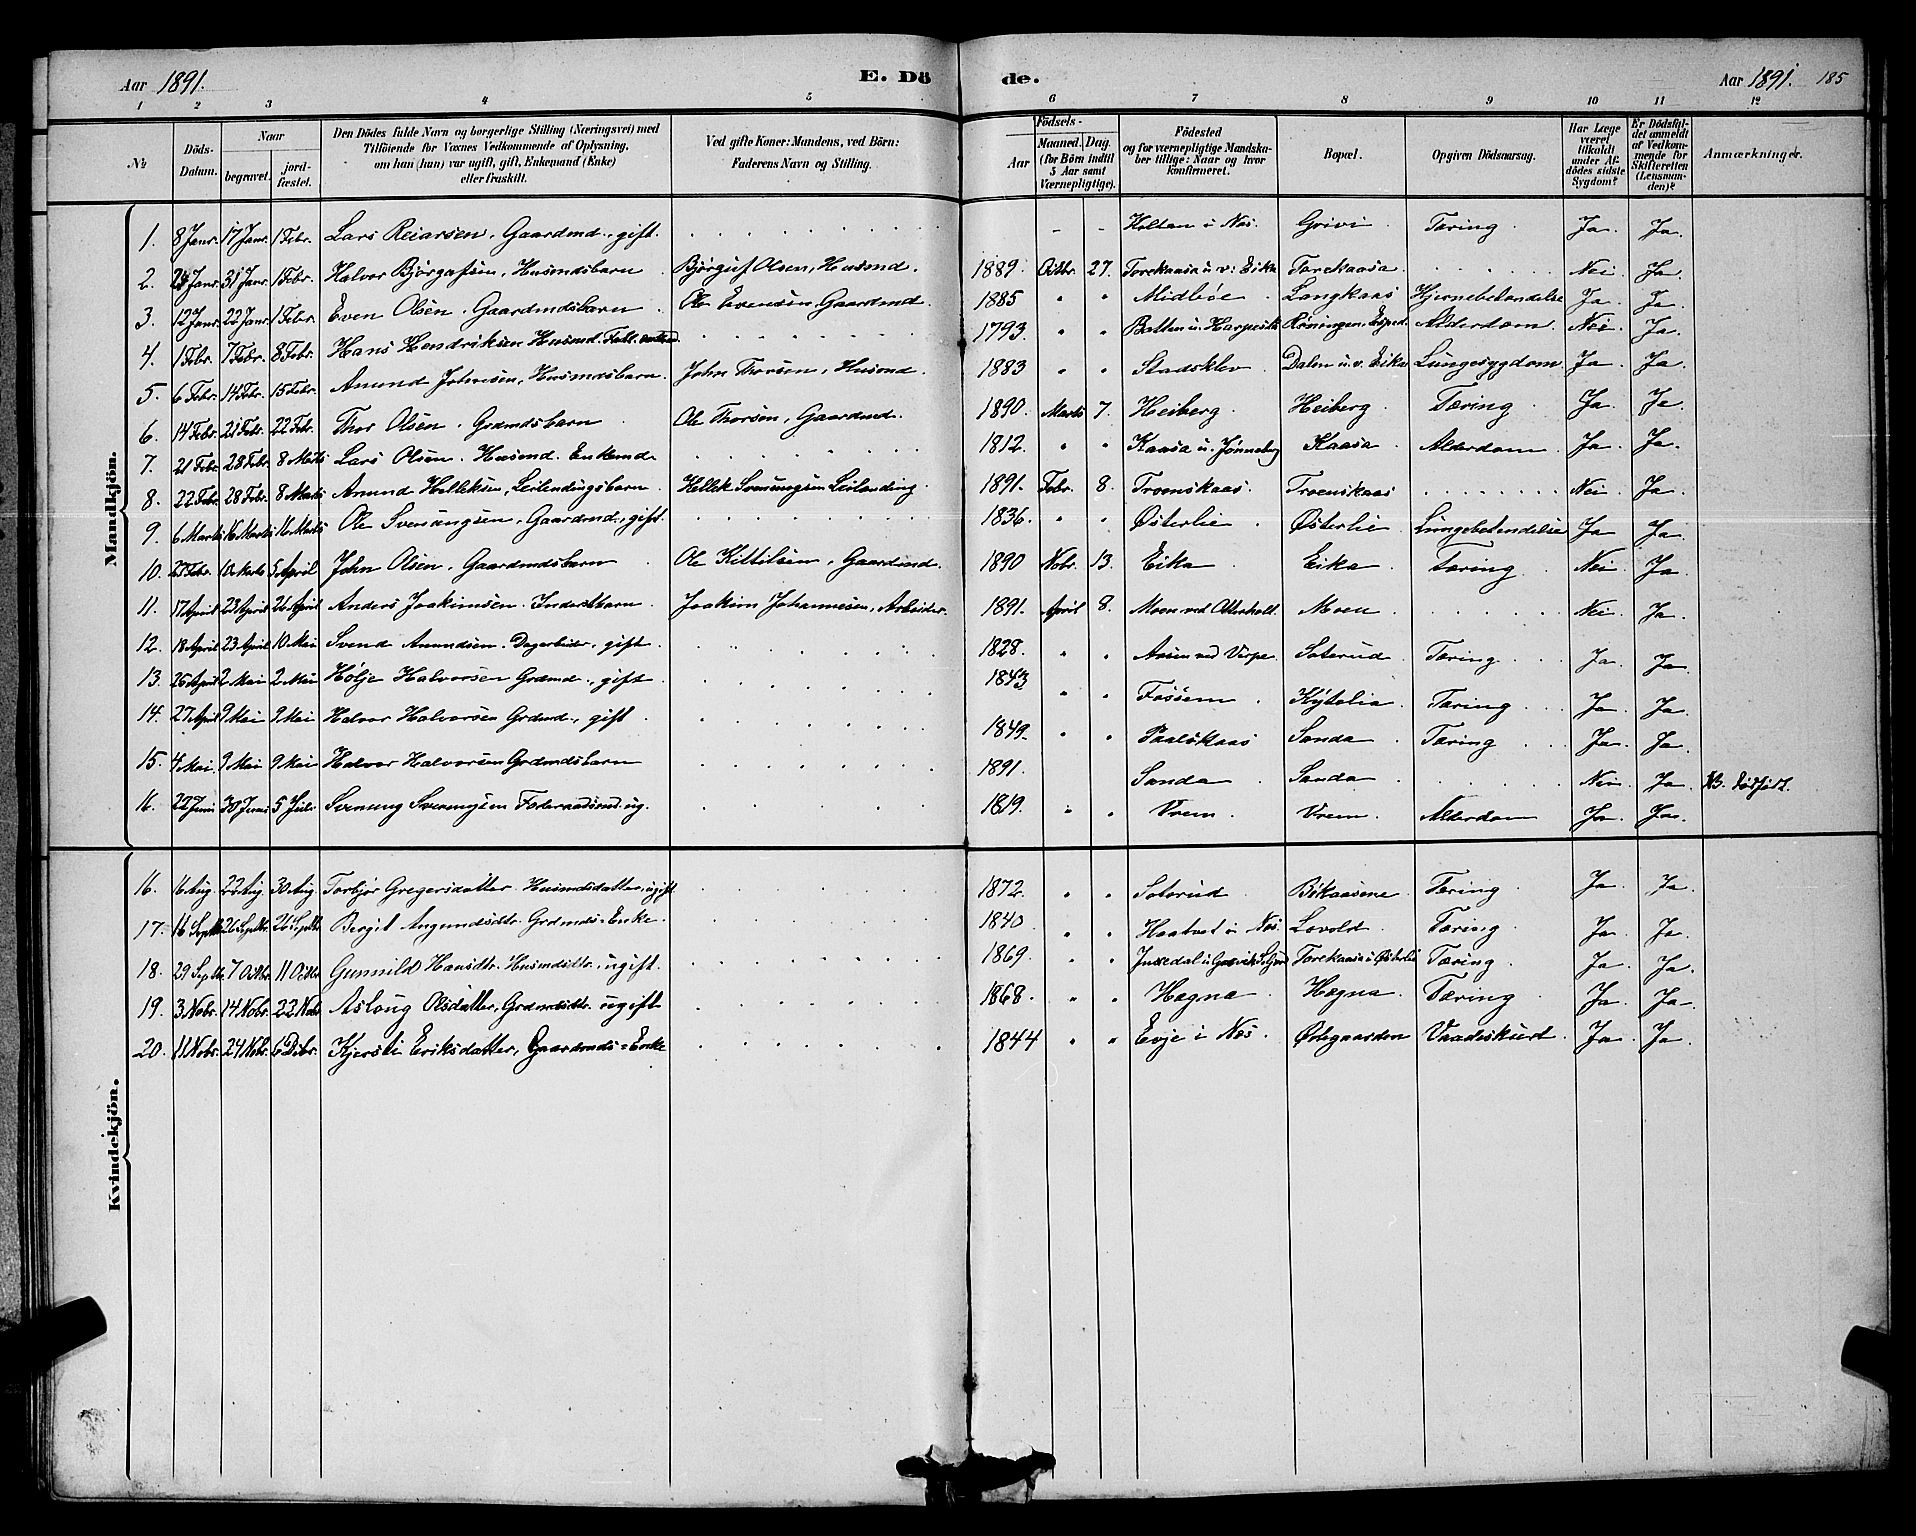 Aar 1891. E. Dö de. Aar 1891. 185
1 2 3 4 5 6 7 8 9 10 11 12
№ Döds-Datum. Naar begravet. jord-fæstet. Den Dödes fulde Navn og borgerlige Stilling (Næringsvei) med Tilföiende for Voxnes Vedkommende af Oplysning, om han (hun) var ugift, gift, Enkemand (Enke) eller fraskilt. Ved gifte Koner: Mandens, ved Börn: Faderens Navn og Stilling. Födsels- Aar Maaned. Dag. (for Börn indtil 5 Aar samt Værnepligtige). Födested og for værnepligtige Mandskaber tillige: Naar og hvor konfirmeret. Bopæl. Opgiven Dödsaarsag. Har Læge været tilkaldt under Afdödes sidste Sygdom? Er Dödsfaldet anmeldt af Vedkommende for Skifteretten (Lensmanden)? Anmærkninger.
Mandkjön.
1. 8 Janr. 17 Janr. 1 Febr. Lars Reiarsen, Gaardmd., gift. - - Holtan i Næs. Grivi Tæring Ja. Ja.
2. Janr. 31 Janr. 1 Febr. Halvor Bjørgufsen, Husmdsbarn Bjørguf Olsen, Husmd. 1889. Octbr. 27. Torekaasa u. v. Eika Torekaasa. Nei Ja.
3. 12 Janr. 22 Janr. 1 Febr. Even Olsen, Gaardmdsbarn Ole Evensen, Gaardmd. 1885 " " Midbøe. Langkaas Hjernebetændelse Ja. Ja.
4. 1 Febr. 7 Febr. 8 Febr. Hans Hendriksen Husmd. 1793. " " Alderdom. Nei. Ja.
5. 6 Febr. 14 Febr. 15 Febr. Amund Johnsen, Husmdsbarn. John Thorsen, Husmd. 1883 " " Stadsklev Dalen u. v. Eika Lungesygdom Ja. Ja.
6. 14 Febr. 21 Febr. 22 Febr. Thor Olsen. Grdmdsbarn Ole Thorsen, Gaardmd. 1890. Marts 7. Heiberg. Heiberg. Tæring Ja. Ja.
7. 21 Febr. 28 Febr. 8 Marts Lars Olsen. Husmd. Enkemd. 1812. " " Kaasa u. Jønneberg Kaasa Alderdom. Ja. Ja.
8. 22 Febr. 28 Febr. 8 Marts Amund Helleksen, Leilendingsbarn. Hellek Svenungsen Leilending. 1891. Febr. 8. Troenskaas. Troenskaas Nei Ja.
9. 6 Marts 16 Marts 16 Marts Ole Svenungsen, Gaardmd., gift. 1836. " " Østerlie Østerlie Lungebetændelse Ja Ja.
10. 27 Febr. 10 Marts 5 April John Olsen, Gaardmdsbarn Ole Kittilsen, Gaardmd. 1890 Nobr. 13. Eika Eika Tæring Nei Ja.
11. 17 April 23 April 26 April Anders Joakimsen. Inderstbarn Joakim Johannesen, Arbeider. 1891. April 8. Moen ved Moen Nei Ja.
12. 18 April 23 April 10 Mai Svend Amundsen. Dagarbeider, gift. 1828. " " Aasen ved Verpe Soterud Tæring Ja. Ja.
13. 26 April 2 Mai 2 Mai Hølje Halvorsen Grdmd., gift 1843 " " Fossem Kytelia Tæring Ja. Ja.
14. 27 April 9 Mai 9 Mai Halvor Halvorsen Grdmd., gift 1849. " " Paalskaas Sanda Tæring Ja. Ja.
15. 4 Mai 9 Mai 9 Mai Halvor Halvorsen Grdmdsbarn 1891. Sanda Sanda Nei. Ja. NB. Dødfødt.
16. 22 Juni 30 Juni 5 Juli Svenung Svenungsen Føderaadsmd, ug. 1819. " " Vrem Vrem. Alderdom Ja. Ja.
Kvindekjön.
16. 16 Aug. 22 Aug. 30 Aug. Torbjør Gregersdatter Husmdsdatter, ugift. 1872. " " Soterud Bekaasene Tæring Ja. Ja.
17. 16 Septbr. 26 Septbr. 26 Septbr. Bergit Aagundsdtr. Grdmds-Enke. 1840 " " Haatvet i Næs. Lovold. Tæring Ja. Ja.
18. 29 Septbr. 7 Octbr. 11 Octbr Gunnild Hansdtr. Husmdsdtr., ugift. 1869. " " Torekaasa u Østerlie Tæring Ja. Ja.
19. 3 Nobr. 14 Nobr. 22 Nobr Aslaug Olsdatter, Grdmdsdtr. ugift 1868. " " Hægna Hægna. Tæring Ja. Ja.
20. 11 Nobr. 24 Nobr. 6 Decbr. Kjersti Eriksdatter, Gaardmds-Enke 1844 " " Evje i Næs. Østegaarden Vaadeskud. Ja. Ja.